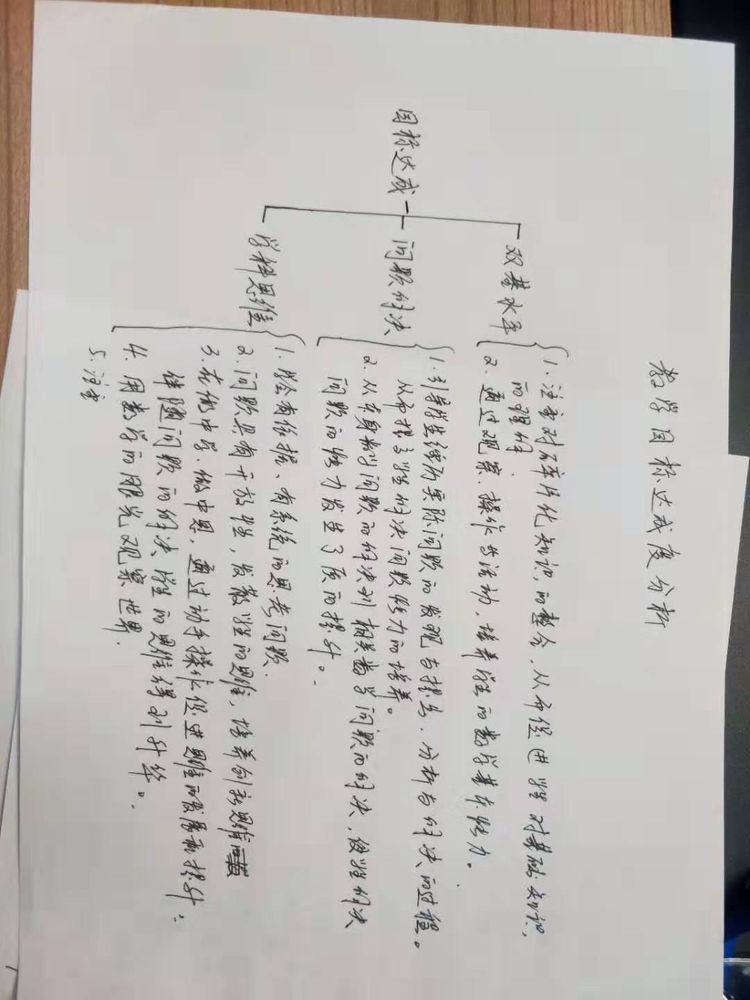 教学目标达成度分析
目标达成
双基水平
1. 注重对碎片化知识的整合，从而促进学生对基础知识，
的理解；
2. 通过观察、操作与活动，培养学生的数学基本能力。
问题解决
1. 引导学生经历实际问题的发现与提出、分析与解决的过程。
从而提高学生解决问题能力的培养。
2. 从单身的问题的解决到相关数学问题的解决，使学生解决
问题的能力发生了质的提升。
学科思维
1. 学会有依据、有系统的思考问题.
2. 问题具有开放性，发散学生的思维，培养创新思维
3. 在做中学、做中思，通过动手操作促进思维的发展和提升；
伴随问题的解决学生的思维得到升华。
4. 用数学的眼光观察世界.
5. 注重